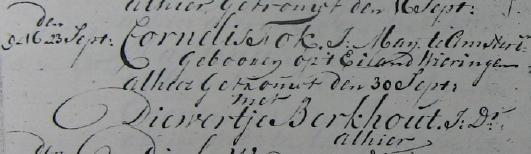 alhier Getrouwt den 16 Sept:
den
9. 16. 23 Sept: Cornelis Fok. J. Man.
Gebooren opt Eiland Wieringen
alhier Getrouwt den 30 Sept:
met
Diewertje Berkhout. J. Dr.
alhier
den